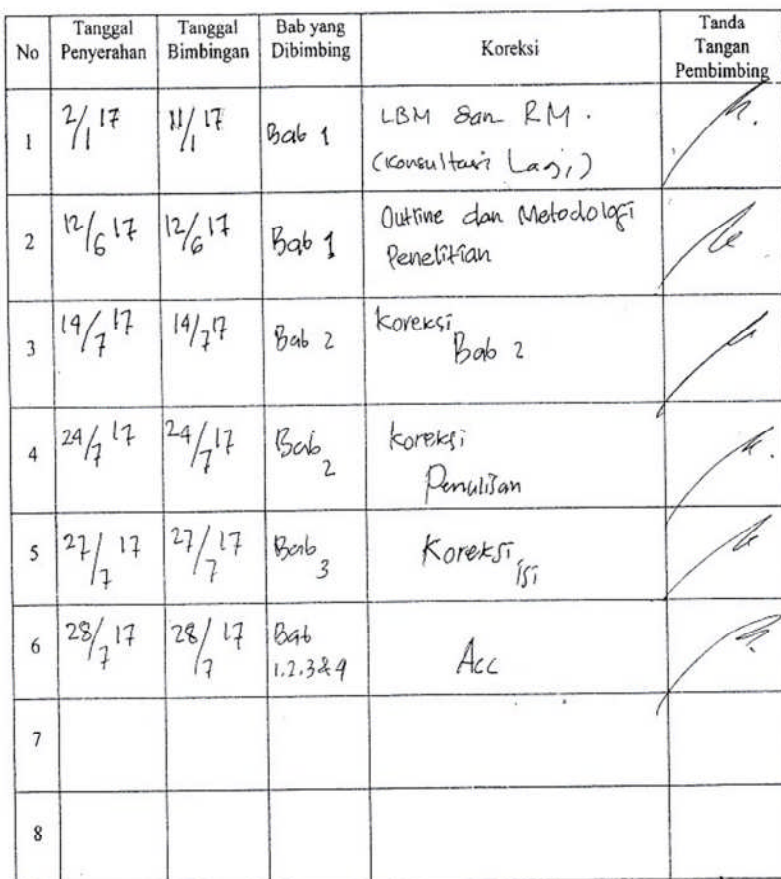 No Tanggal Penyerahan Tanggal Bimbingan Bab yang Dibimbing Koreksi Tanda Tangan Pembimbing
1 2/1 17 11/1 17 Bab 1 LBM dan RM.
(Konsultasi Lagi)
2 12/6 17 12/6 17 Bab 1 Outline dan Metodologi
Penelitian
3 14/7 17 14/7 17 Bab 2 Koreksi
Bab 2
4 24/7 17 24/7 17 Bab 2 Koreksi
Penulisan
5 27/7 17 27/7 17 Bab 3 Koreksi
isi
6 28/7 17 28/7 17 Bab 1.2.3&4 Acc
7
8